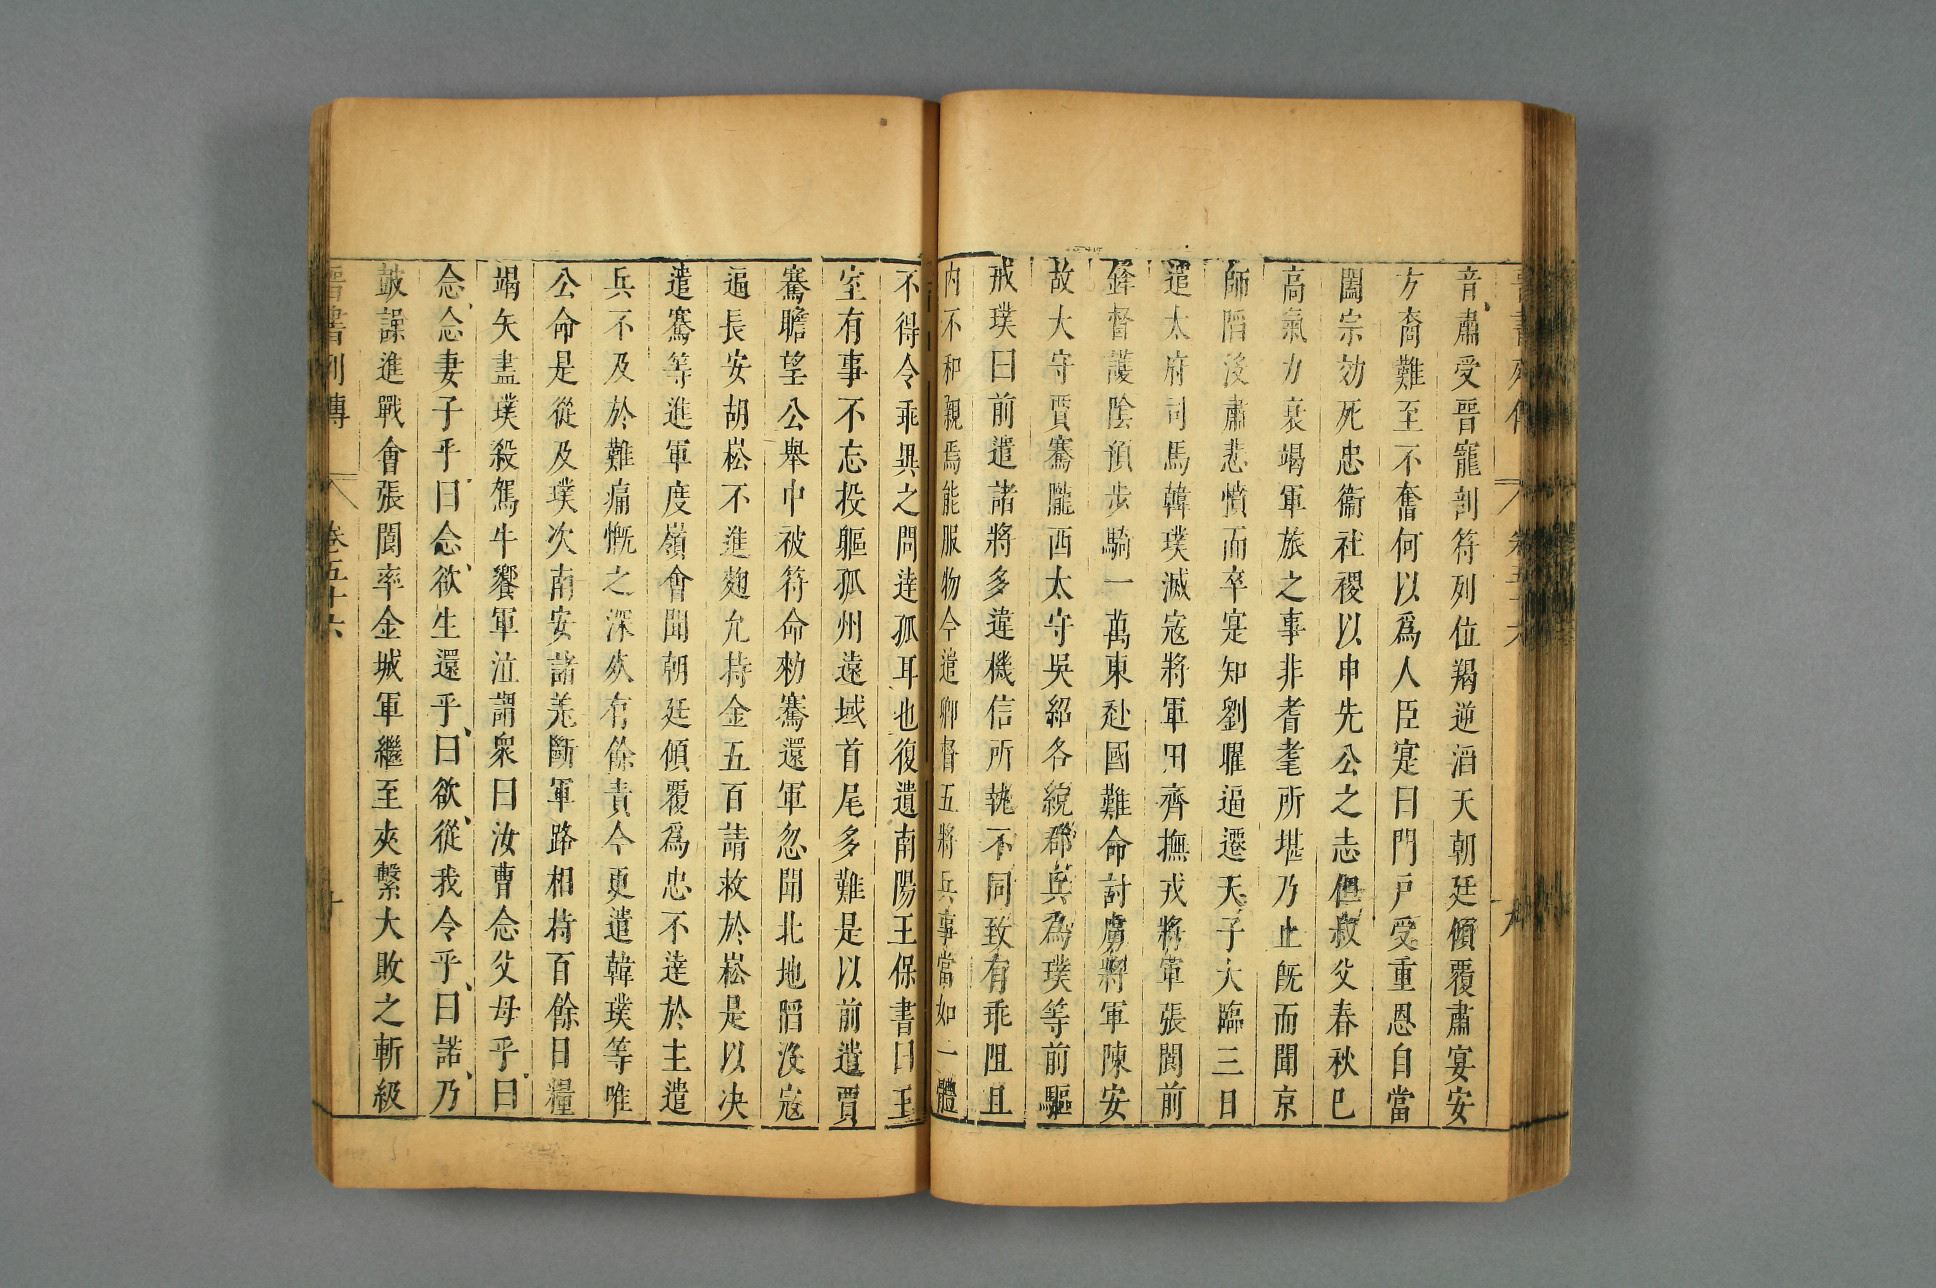 晉書列傳 卷五十六 九
音肅受晉寵剖符列位羯逆滔天朝廷傾覆肅宴安
方裔難至不奮何以爲人臣寔曰門戸受重恩自當
闔宗効死忠衞社稷以申先公之志但叔父春秋已
高氣力衰竭軍旅之事非耆耄所堪乃止旣而聞京
師䧟沒肅悲憤而卒寔知劉曜逼遷天子大臨三日
遣太府司馬韓璞滅寇將軍田齊撫戎將軍張閬前
鋒督護陰預步騎一萬東赴國難命討虜將軍陳安
故太守賈騫隴西太守吳紹各統郡兵爲璞等前驅
戒璞曰前遣諸將多違機信所執不同致有乖阻且
内不和親焉能服物今遣卿督五將兵事當如一體
不得令乖異之問逹孤耳也復遺南陽王保書曰王
室有事不忘投軀孤州遠域首尾多難是以前遣賈
騫瞻望公舉中被符命勑騫還軍忽聞北地䧟沒寇
逼長安胡崧不進麴允持金五百請救於崧是以决
遣騫等進軍度嶺會聞朝廷傾覆爲忠不逹於主遣
兵不及於難痛慨之深死有餘責今更遣韓璞等唯
公命是從及璞次南安諸羌斷軍路相持百餘日糧
竭矢盡璞殺駕牛饗軍泣謂衆曰汝曹念父母乎曰
念念妻子乎曰念欲生還乎曰欲從我令乎曰諾乃
鼓譟進戰會張閬率金城軍繼至夾擊大敗之斬級
晉書列傳 卷五十六 十